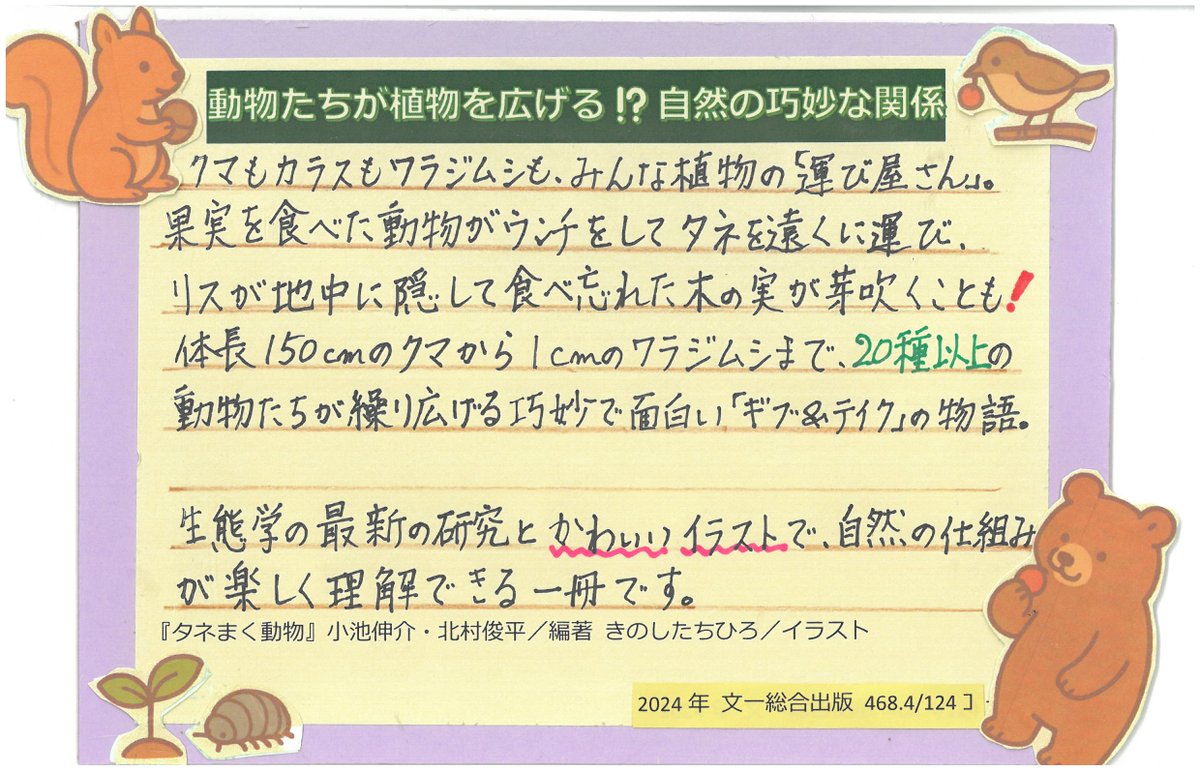 動物たちが植物を広げる⁉自然の巧妙な関係
クマもカラスもワラジムシも、みんな植物の「運び屋さん」。
果実を食べた動物がウンチをしてタネを遠くに運び、
リスが地中に隠して食べ忘れた木の実が芽吹くことも!
体長150cmのクマから1cmのワラジムシまで、20種以上の
動物たちが繰り広げる巧妙で面白い「ギブ&テイク」の物語。
生態学の最新の研究とかわいいイラストで、自然の仕組み
が楽しく理解できる一冊です。
『タネまく動物』小池伸介・北村俊平／編著 きのしたちひろ／イラスト
2024年 文一総合出版 468.4/124コ